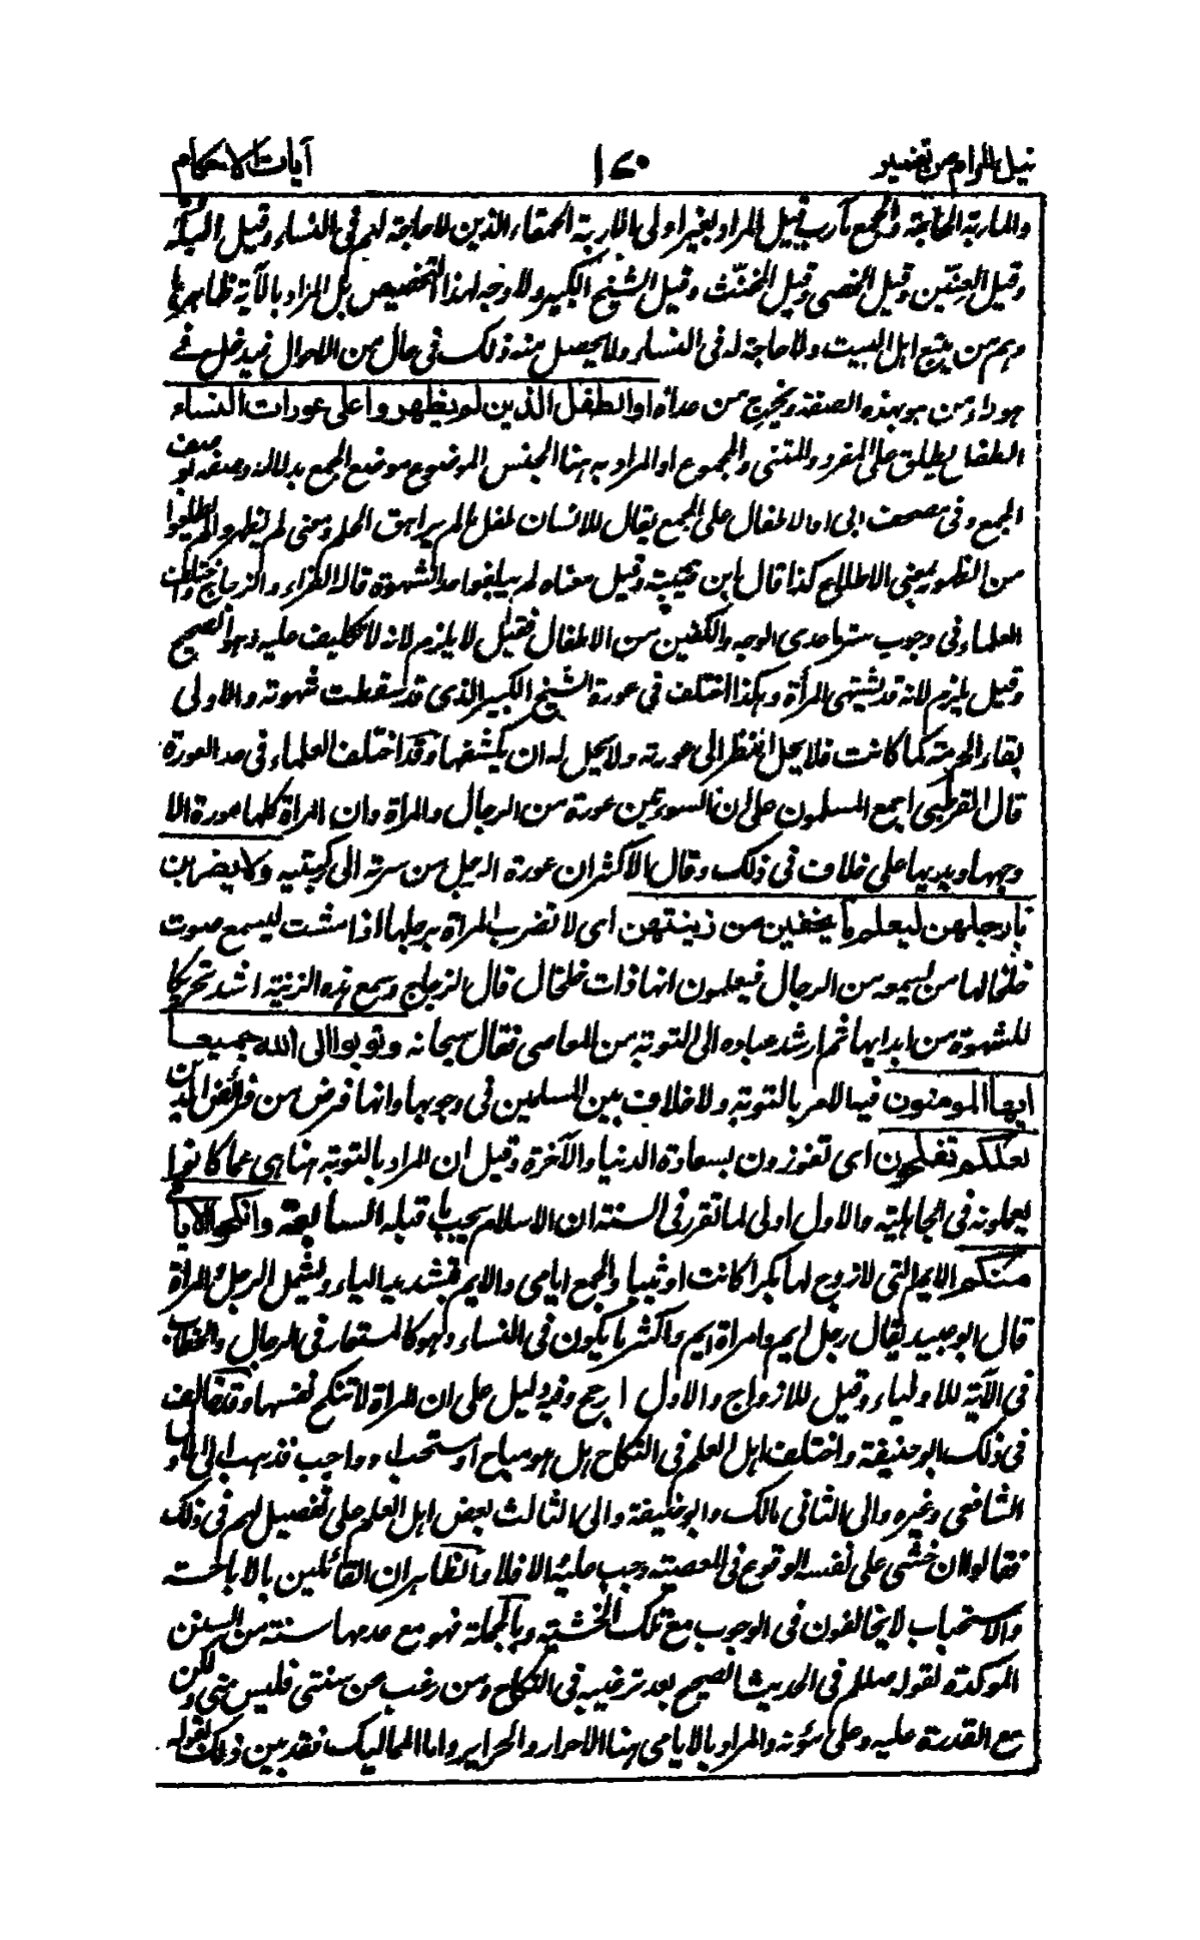 نيل المرام من تفسير ١٧٠ آيات الاحكام
والماربة الحاجة والجمع مآرب قيل المراد بغير اولى الاربة الحمقاء الذين لا حاجة لهم فى النساء وقيل البله
وقيل العنّين وقيل الخصى وقيل المخنّث وقيل الشيخ الكبير ولا وجه لهذا التخصيص بل المراد بالآية ظاهرها
وهم من يتبع اهل البيت ولا حاجة له فى النساء ولا يحصل منه ذلك فى حال من الاحوال فيدخل فى
هولاء من هو بهذه الصفة ويخرج من عداه او الطفل الذين لم يظهروا على عورات النساء
الطفل يطلق على المفرد والمثنى والمجموع او المراد به هنا الجنس الموضوع موضع الجمع بدلالة وصفه بوصف
الجمع وفى مصحف ابى الاطفال على الجمع يقال للانسان طفل ما لم يراهق الحلم ومعنى لم يظهروا لم يطلعوا
من الظهور بمعنى الاطلاع كذا قال ابن قتيبة وقيل معناه لم يبلغوا حد الشهوة قاله الفراء والزجاج واختلف
العلماء فى وجوب ستر ما عدى الوجه والكفين من الاطفال فقيل لا يلزم لانه لا تكليف عليه وهو الصحيح
وقيل يلزم لانه قد يشتهى المرأة وهكذا اختلف فى عورة الشيخ الكبير الذى قد سقطت شهوته والاولى
بقاء الحرمة كما كانت فلا يحل النظر الى عورته ولا يحل له ان يكشفها وقد اختلف العلماء فى حد العورة
قال القرطبى اجمع المسلمون على ان السوءتين عورة من الرجال والمراة وان المراة كلها عورة الا
وجهها ويديها على خلاف فى ذلك وقال الاكثر ان عورة الرجل من سرته الى ركبتيه ولا يضربن
بارجلهن ليعلم ما يخفين من زينتهن اى لا تضرب المراة برجلها اذا مشت ليسمع صوت
خلخالها من يسمعه من الرجال فيعلمون انها ذات خلخال قال الزجاج وسمع هذه الزينة اشد تحريكا
للشهوة من ابدائها ثم ارشد عباده الى التوبة من المعاصى فقال سبحانه وتوبوا الى الله جميعا
ايها المومنون فيه الامر بالتوبة ولا خلاف بين المسلمين فى وجوبها وانها فرض من فرائض الدين
لعلكم تفلحون اى تفوزون بسعادة الدنيا والآخرة وقيل ان المراد بالتوبة هنا هى عما كانوا
يعملونه فى الجاهلية والاول اولى لما تقرر فى السنة ان الاسلام يجب ما قبله السابعة وانكحوا الايامى
منكم الايم التى لا زوج لها بكرا كانت او ثيبا والجمع ايامى والايم بتشديد الياء ويشمل الرجل والمراة
قال ابو عبيد يقال رجل ايم وامراة ايم واكثر ما يكون فى النساء وهو كالمستعار فى الرجال والخطاب
فى الآية للاولياء وقيل للازواج والاول ارجح وفيه دليل على ان المراة لا تنكح نفسها وقد خالف
فى ذلك ابو حنيفة واختلف اهل العلم فى النكاح هل هو مباح او مستحب او واجب فذهب الى الاول
الشافعى وغيره والى الثانى مالك وابو حنيفة والى الثالث بعض اهل العلم على تفصيل لهم فى ذلك
فقالوا ان خشى على نفسه الوقوع فى المعصية وجب عليه والا فلا والظاهر ان القائلين بالاباحة
والاستحباب لا يخالفون فى الوجوب مع تلك الخشية وبالجملة فهو مع عدمها سنة من السنن
الموكدة لقوله صللم فى الحديث الصحيح بعد ترغيبه فى النكاح ومن رغب عن سنتى فليس منى ولكن
مع القدرة عليه وعلى مؤنه والمراد بالايامى هنا الاحرار والحراير واما المماليك فقد بين ذلك بقوله